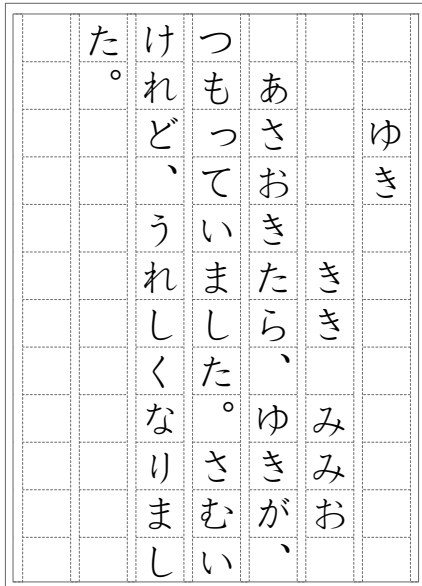 ゆき
きき　みみお
あさおきたら、ゆきが、
つもっていました。さむい
けれど、うれしくなりまし
た。